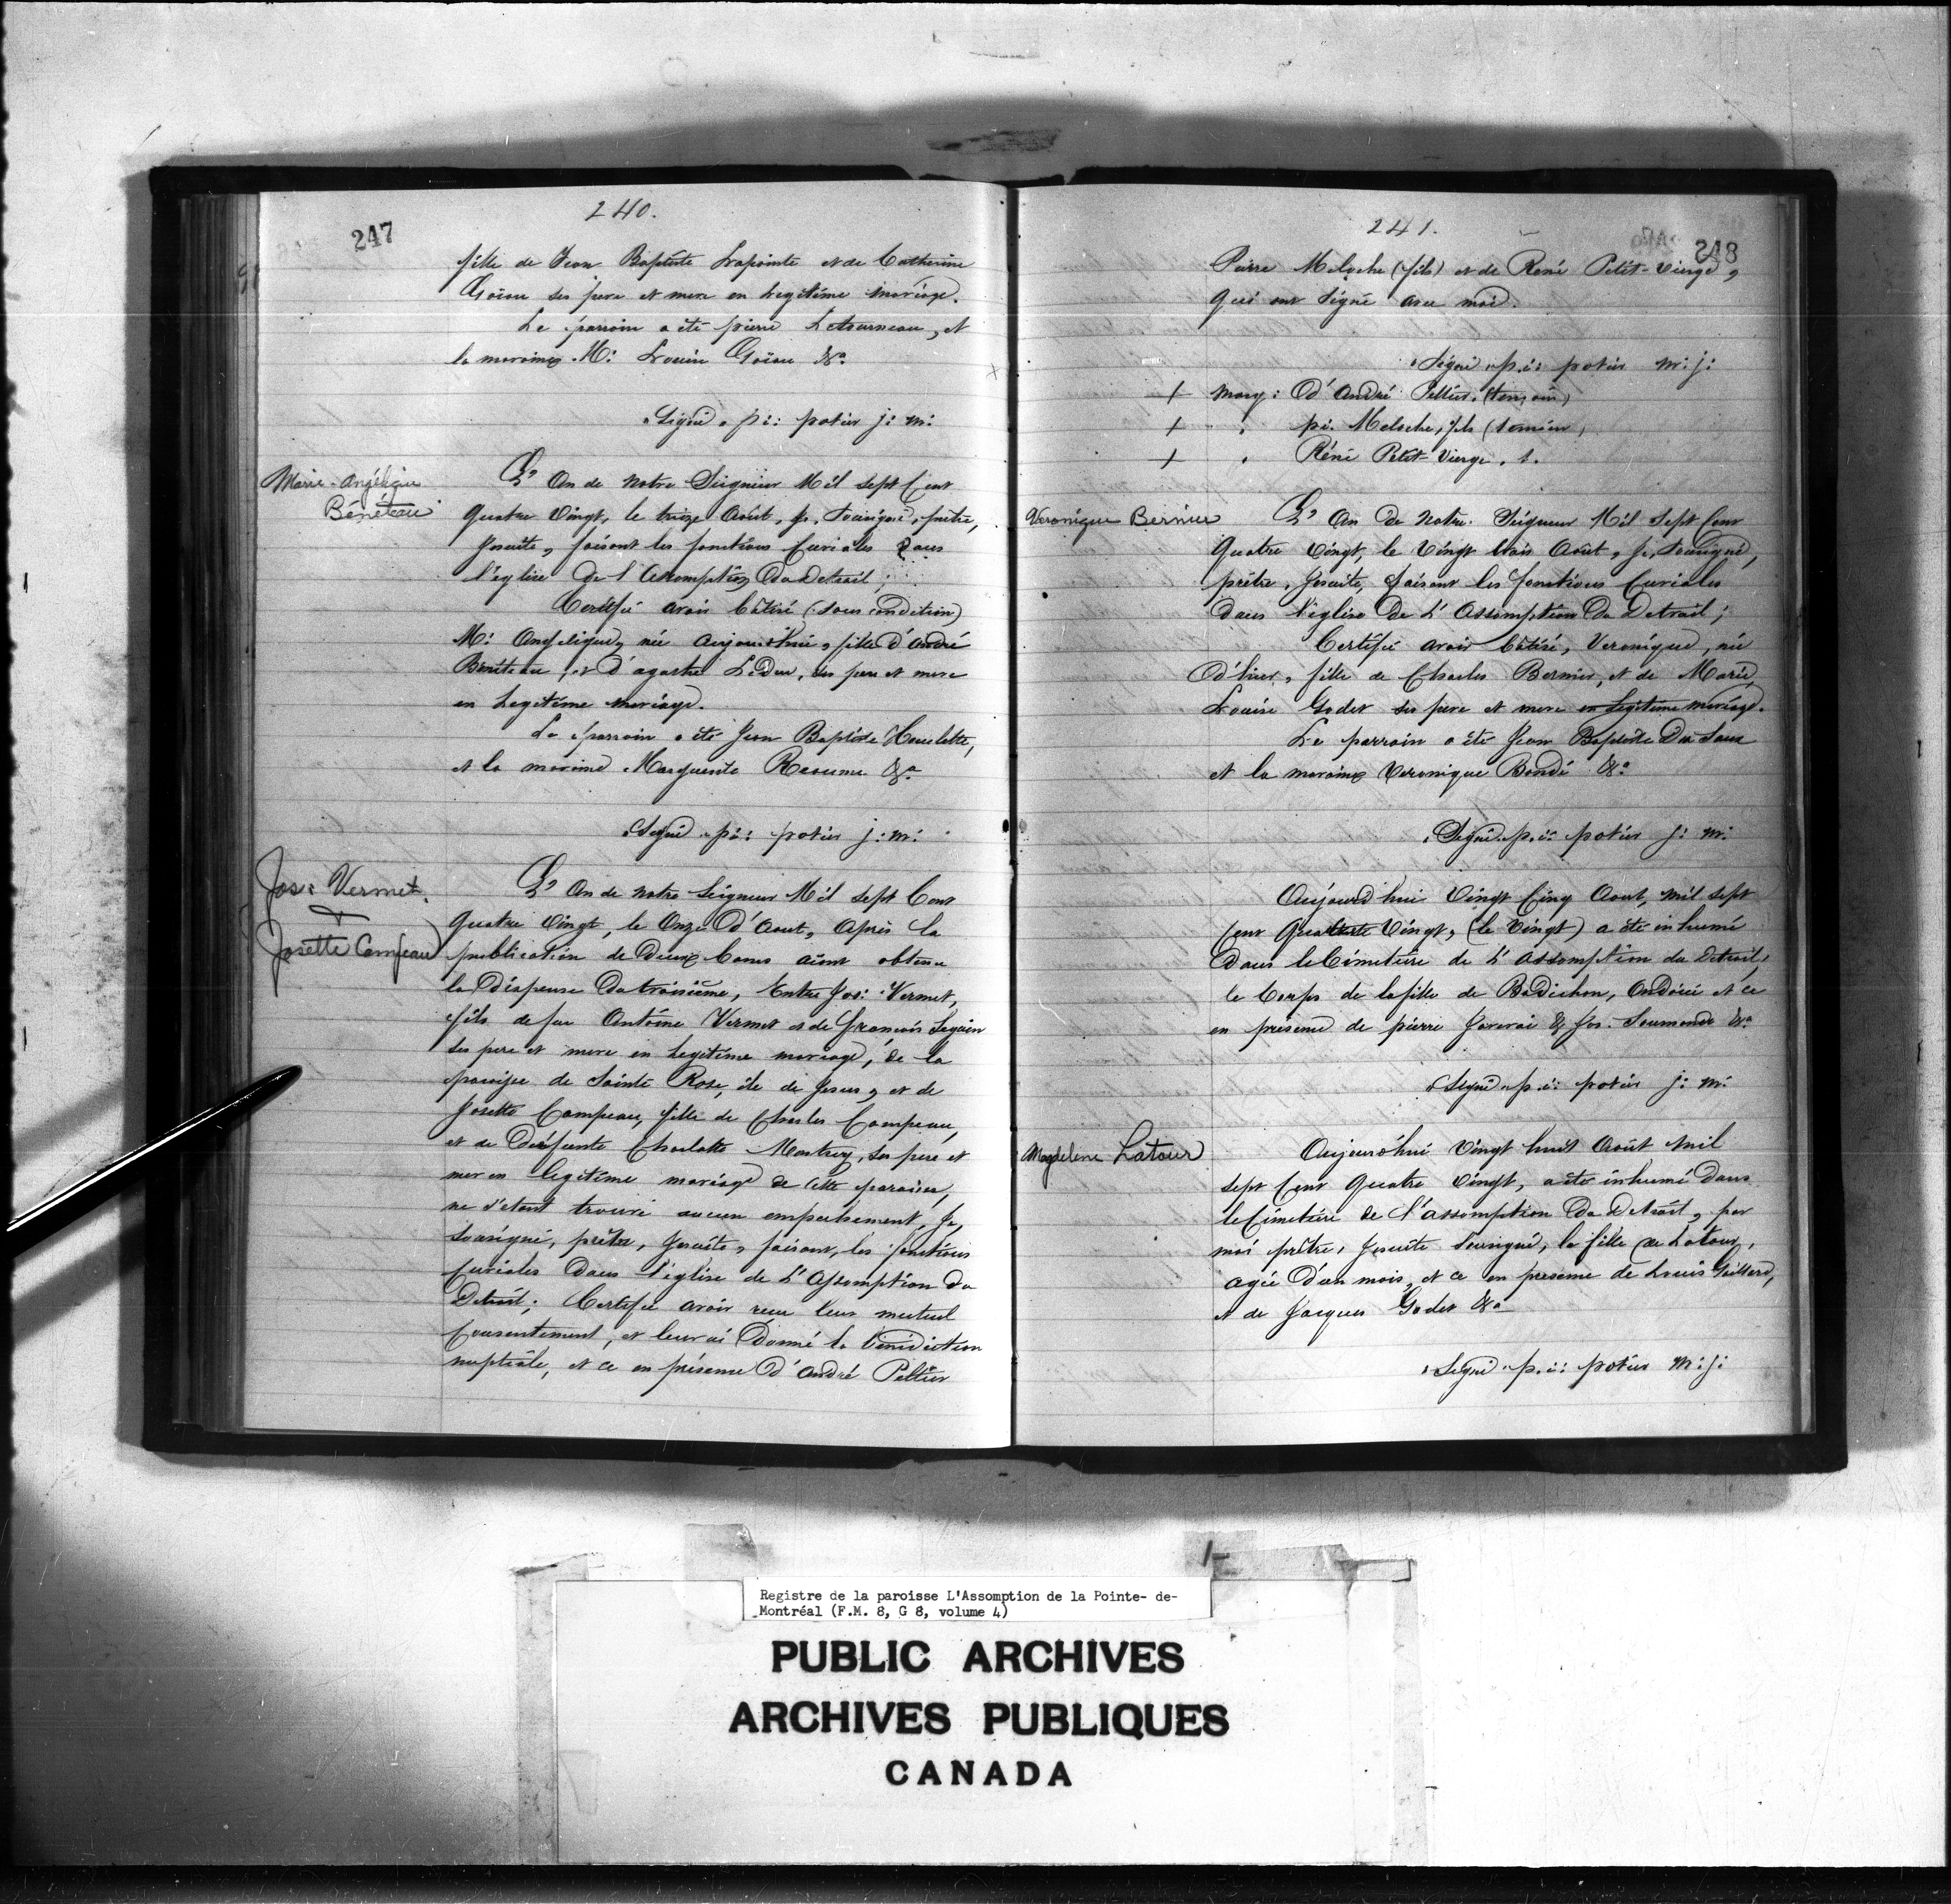 240.
247
fille de Jean Baptiste Lapointe et de Catherine
Goïau ses pere et mere en legitime mariage.
Le parrain a été pierre Letourneau, et
la maraine M: Louise Goïau &a
"Signé" pi: potier j: m:
Marie-Angélique
Béneteau
L'An de notre Seigneur Mil sept Cent
Quatre Vingt, le treize Août, je, soussigné, prêtre,
Jesuite, faisant les fonctions Curiales dans
l'église de l'Assomption du Detroit;
Certifie avoir bâtisé (sous condition)
M: Angelique, née aujourd'hui, fille d'André
Béniteau, et d'agathe Leduc, ses pere et mere
en legitime mariage.
Le parrain a été Jean Baptiste Houlette,
et la maraine Marguerite Reaume &a
"Signé" pi: potier j: m:
Jos: Vermet.
&
Josette Campeau
L'An de notre Seigneur Mil sept Cent
Quatre Vingt, le Onze d'Aout, Après la
publication de Deux bans aïant obtenu
la Dispense du troisième, Entre Jos: Vermet,
fils de feu Antoine Vermet et de François Seguin
ses pere et mere en legitime mariage, de la
paroisse de Sainte Rose, île de Jesus, et de
Josette Campeau, fille de Charles Campeau,
et de Deéfunte Charlotte Montrey, ses pere et
mere en legitime mariage de cette paroisse,
ne s'étant trouvé aucun empechement, Je,
soussigné, prêtre, Jesuite, faisant, les fonctions
Curiales dans l'église de L'Assomption du
Detroit; Certifie avoir recu leur mutuel
Consentement, et leur ai Donné la bénédiction
nuptiale, et ce en présence d'André Peltier
241.
248
Pierre Meloche (fils) et de René Petit-Vierge,
qui ont signé avec moi.
"Signé" p.i: potier m: j:
+ marq: d'André Peltier. (temoin)
+ " pi. Meloche, fils (temoin)
+ " Réné Petit-Vierge. t.
Veronique Bernier
L'An de notre Seigneur Mil Sept Cent
Quatre Vingt, le Vingt trois Août, je, soussigné,
prêtre, Jesuite, faisant les fonctions Curiales
dans l'église de L'Assomption du Detroit;
Certifie avoir bâtisé, Veronique, née
d'hier, fille de Charles Bernier, et de Marie
Louise Godet ses pere et mere en legitime mariage.
Le parrain a été Jean Baptiste Du Saux
et la maraine Veronique Bondi &a
"Signé" p.i: potier j: m:
Aujourd'hui Vingt Cinq Aout, mil sept
Cent Quatre Vingt, (le Vingt) a été inhumé
dans le Cimetière de L'Assomption du Detroit,
le Corps de la fille de Badichon, Ondoiée et ce
en présence de pierre Javerai & Jos. Soumande &a
"Signé" p.i: potier j: m:
Magdelene Latour
Aujourd'hui Vingt huit Août Mil
sept Cent Quatre Vingt, a été inhumé Dans
le Cimetière de l'assomption du Detroit, par
moi prêtre, Jesuite soussigné, la fille de Latour,
agée d'un mois, et ce en presence de Louis Gaillard,
et de Jacques Godet &a
"Signé" p.i: potier m: j:
Registre de la paroisse L'Assomption de la Pointe- de-
Montréal (F.M. 8, G 8, volume 4)
PUBLIC ARCHIVES
ARCHIVES PUBLIQUES
CANADA